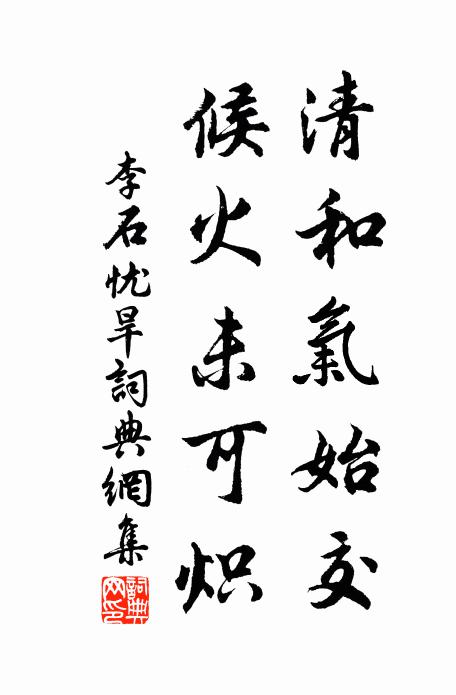 清和氣始交
候火未可炽
李石忧旱詞典網集
詞典網印